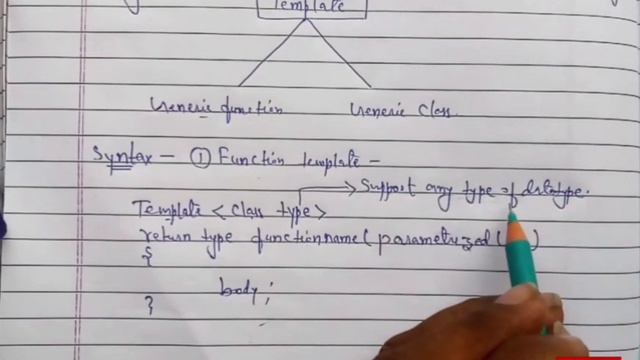 Template
Generic function Generic Class.
Syntax - ① Function template -
Support any type of datatype.
Template < class type>
return type function name ( parametrized ( )
{
body;
}